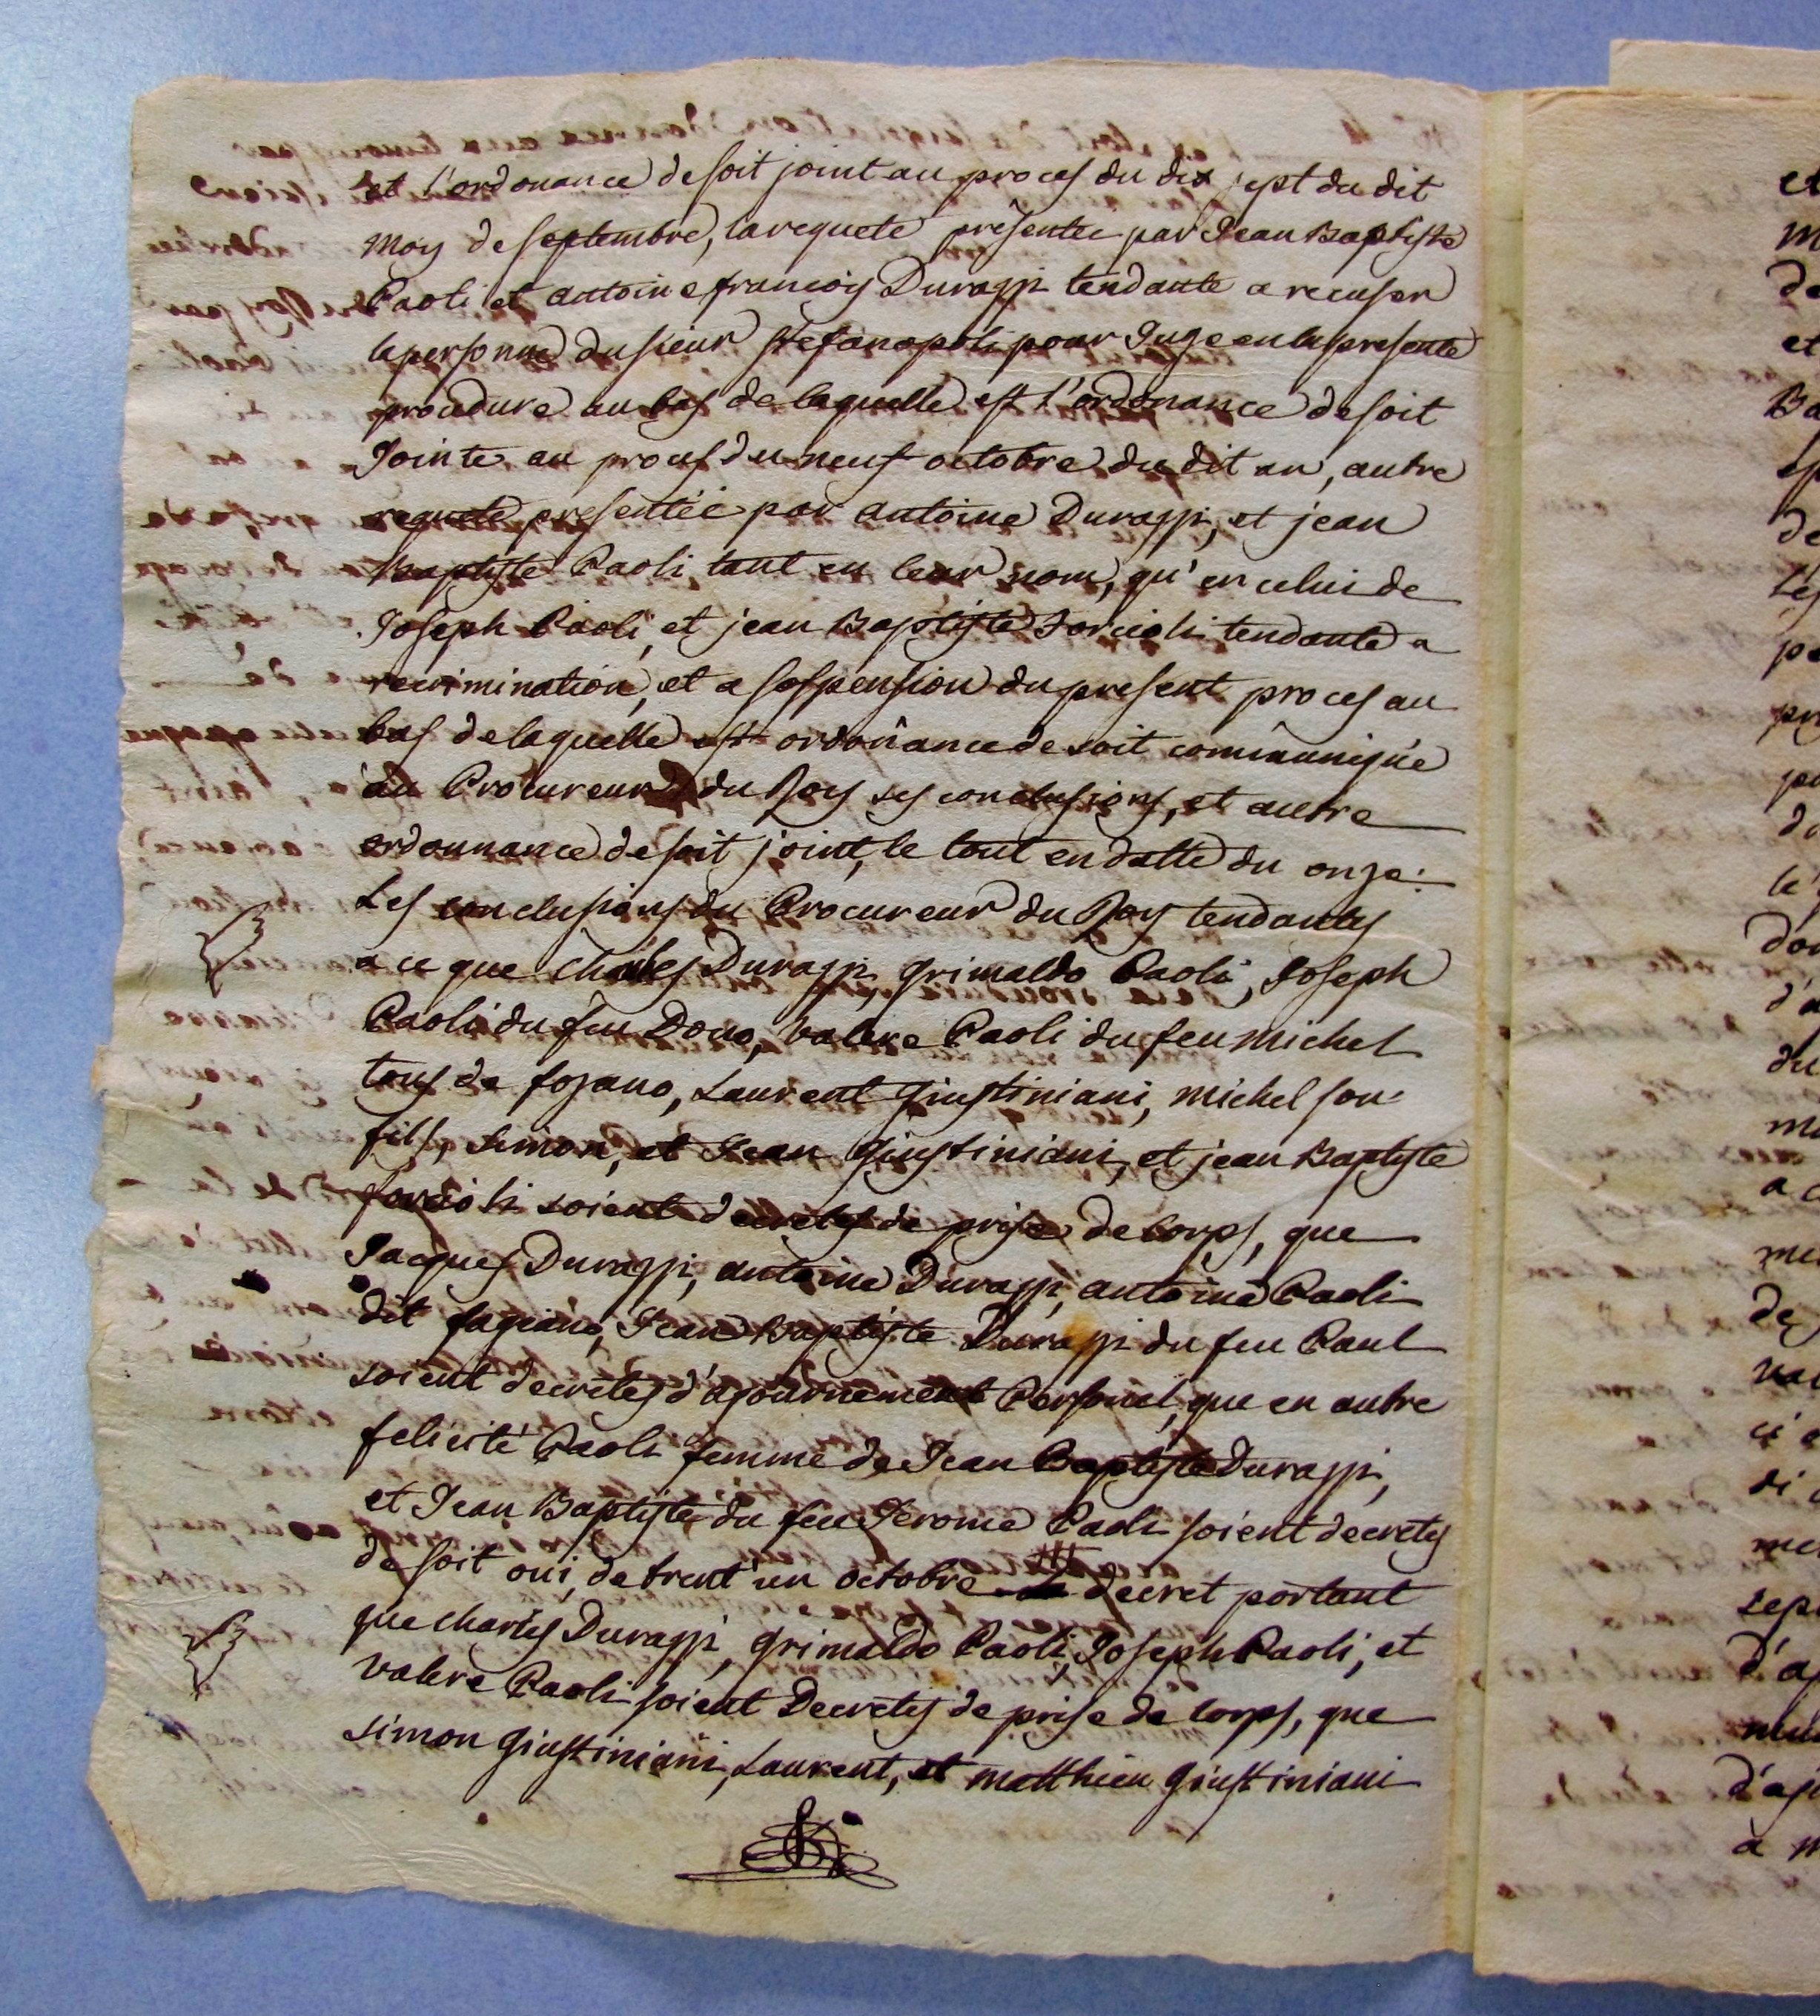 et l'ordonance de soit joint au proces du dix sept du dit
moy de septembre, la requete présentée par Jean Baptiste
Paoli et antoine françois Durazzi tendante a recuser
la personne du sieur stefanopoli pour Juge en la presente
procedure au bas de laquelle est l'ordonance de soit
Jointe au proces du neuf octobre du dit an, autre
requete presentéé par antoine Durazzi, et jean
Baptiste Paoli, tant en leur nom, qu'en celui de
Joseph Paoli, et jean Baptiste Forcioli tendante a
recrimination, et a sospension du present proces au
bas de laquelle est ordonance de soit communiqué
au Procureur du Roy ses conclusions, et autre
ordonnance de soit joint, le tout en datte du onze.
Les conclusions du Procureur du Roy tendantes
a ce que Charles Durazzi, grimaldo Paoli, Joseph
Paoli du feu Dono, valere Paoli du feu michel
tous de fozano, Laurent giustiniani, michel son
fils, simon, et Jean giustiniani, et jean Baptiste
forcioli soient decretes de prise de corps, que
Jacques Durazzi, antoine Durazzi, antoine Paoli
dit fagiano, Jean Baptiste Durazzi du feu Paul
soient decretes d'ajournement Personel, que en outre
felicité Paoli femme de Jean Baptiste Durazzi,
et Jean Baptiste du feu Jerome Paoli soient decretes
de soit oui, de trent'un octobre decret portant
que charles Durazzi, grimaldo Paoli, Joseph Paoli, et
valere Paoli soient Decretes de prise de corps, que
simon giustiniani, Laurent, et matthieu giustiniani